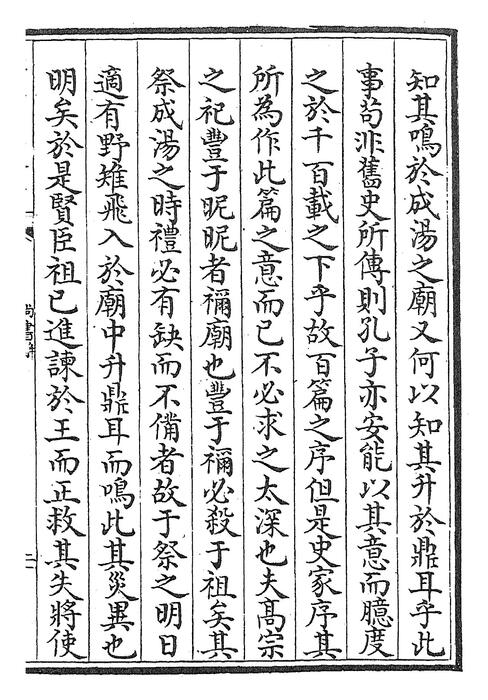 知其鳴於成湯之廟又何以知其升於鼎耳乎此
事茍非舊史所傳則孔子亦安能以其意而臆度
之於千百載之下乎故百篇之序但是史家序其
所為作此篇之意而已不必求之太深也夫髙宗
之祀豐于昵昵者禰廟也豐于禰必殺于祖矣其
祭成湯之時禮必有缺而不備者故于祭之明日
適有野雉飛入於廟中升鼎耳而鳴此其災異也
明矣於是賢臣祖已進諫於王而正救其失將使